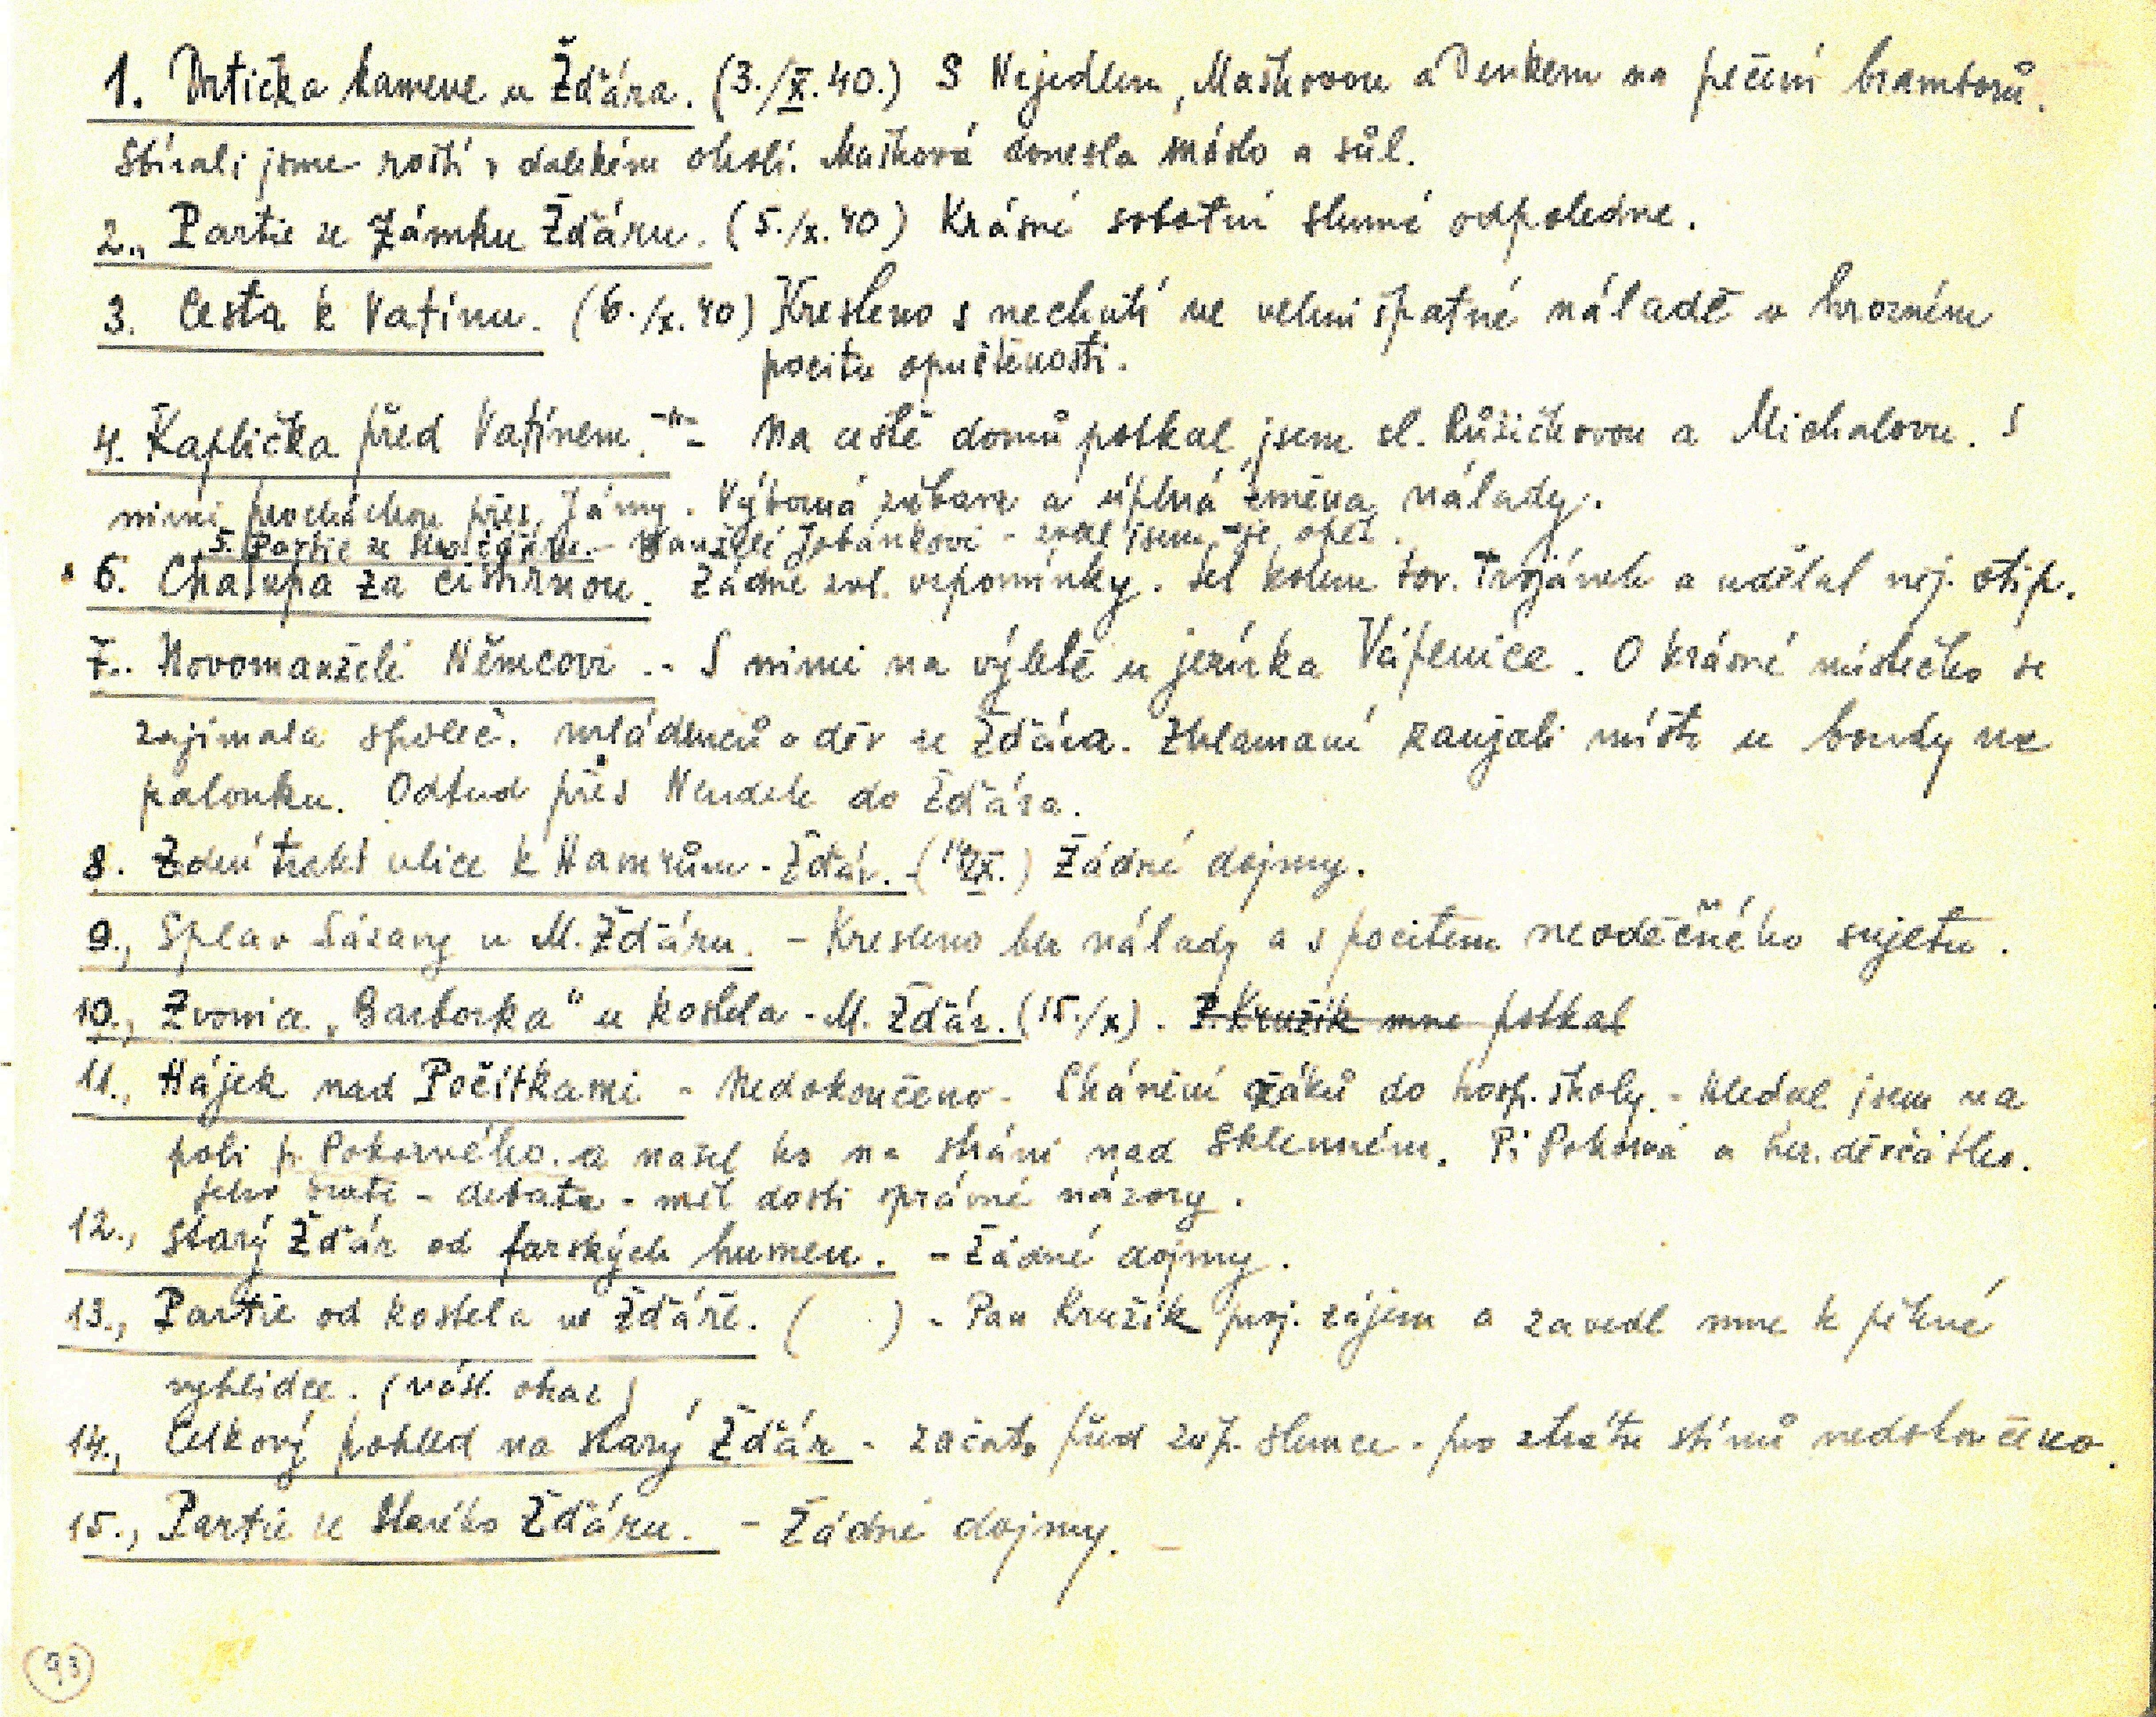 1. Drtička kamene u Žďára. (3./X.40.) S Nejedlem, Maškovou a Denkem na pečení bramborů.
Sbírali jsme roští v dalekém okolí. Mašková donesla máslo a sůl.
2., Partie ze Zámku Žďáru. (5./x.40) Krásné sobotní slunné odpoledne.
3. Cesta k Vatínu. (6./x.40) Kresleno s nechutí ve velmi špatné náladě v hrozném
pocitu opuštěnosti.
4. Kaplička před Vatínem. -"- Na cestě domů potkal jsem sl. Růžičkovou a Michalovu. S
nimi procházkou přes Jámy. Výborná zábava a úplná změna nálady.
5. Partie ze - Manželé Jobánkovi - zval jsem je opět.
6. Chalupa za cihelnou. Žádné zvl. vzpomínky. Šel kolem tov. Trojánek a udělal něj. vtip.
7.. Novomanželé Němcovi .- S nimi na výletě u jezírka Vápenice. O krásné místečko se
zajímala společ. mládenců a děv ze Žďára. Zklamaní zaujali místo u boudy na
palouku. Odtud přes do Žďára.
8. Zadní trakt ulice k Hamrům - Žďár. - (14/X.) Žádné dojmy.
9., Splav Sázavy u M. Žďáru. - Kresleno bez nálady a s pocitem nevděčného sujetu.
10., Zvonice „Barborka" u kostela - M. Žďár. (15./x). P. Kružík mne potkal
11., Hájek nad Počítkami - Nedokončeno - Shánění žáků do hosp. školy. - Hledal jsem na
poli p. Pokorného a našel ho na stráni nad Sklenném. Pí Pokorná a děvčátko.
Jeho - debata - měl dosti správné názory.
12., Starý Žďár od farských humen. - Žádné dojmy.
13., Partie od kostela ve Žďáře. ( ) - Pan Kružík proj. zájem a zavedl mne k pěkné
vyhlídce. (
14., Celkový pohled na starý Žďár - začato před záp. slunce - pro ztrátu stínů nedokončeno.
15., Partie ze Starého Žďáru. - Žádné dojmy. -
93